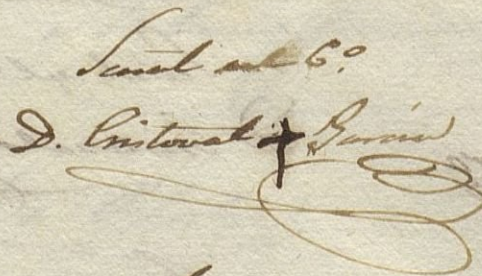 Señal del C.º
D. Cristoval + Garcia